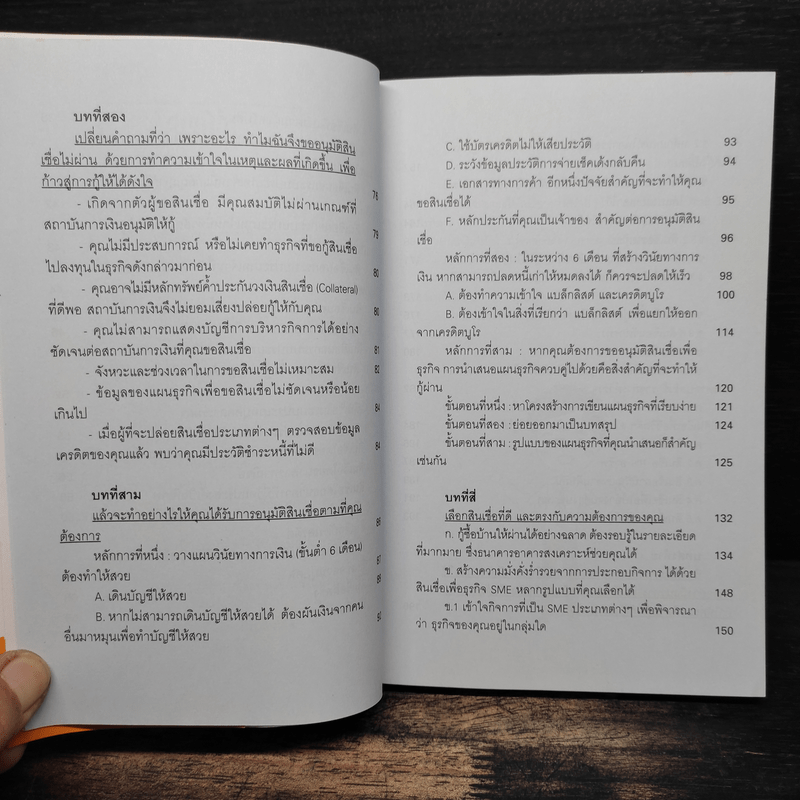 บทที่สอง
เปลี่ยนคำถามที่ว่า เพราะอะไร ทำไมฉันจึงขออนุมัติสิน
เชื่อไม่ผ่าน ด้วยการทำความเข้าใจในเหตุและผลที่เกิดขึ้น เพื่อ
ก้าวสู่การกู้ให้ได้ดังใจ 78
- เกิดจากตัวผู้ขอสินเชื่อ มีคุณสมบัติไม่ผ่านเกณฑ์ที่
สถาบันการเงินอนุมัติให้กู้ 79
- คุณไม่มีประสบการณ์ หรือไม่เคยทำธุรกิจที่ขอกู้สินเชื่อ
ไปลงทุนในธุรกิจดังกล่าวมาก่อน 80
- คุณอาจไม่มีหลักทรัพย์ค้ำประกันวงเงินสินเชื่อ (Collateral)
ที่ดีพอ สถาบันการเงินจึงไม่ยอมเสี่ยงปล่อยกู้ให้กับคุณ 80
- คุณไม่สามารถแสดงบัญชีการบริหารกิจการได้อย่าง
ชัดเจนต่อสถาบันการเงินที่คุณขอสินเชื่อ 81
- จังหวะและช่วงเวลาในการขอสินเชื่อไม่เหมาะสม 82
- ข้อมูลของแผนธุรกิจเพื่อขอสินเชื่อไม่ชัดเจนหรือน้อย
เกินไป 84
- เมื่อผู้ที่จะปล่อยสินเชื่อประเภทต่างๆ ตรวจสอบข้อมูล
เครดิตของคุณแล้ว พบว่าคุณมีประวัติชำระหนี้ที่ไม่ดี 84
บทที่สาม
แล้วจะทำอย่างไรให้คุณได้รับการอนุมัติสินเชื่อตามที่คุณ
ต้องการ 86
หลักการที่หนึ่ง : วางแผนวินัยทางการเงิน (ขั้นต่ำ 6 เดือน)
ต้องทำให้สวย 87
A. เดินบัญชีให้สวย 88
B. หากไม่สามารถเดินบัญชีให้สวยได้ ต้องผันเงินจากคน
อื่นมาหมุนเพื่อทำบัญชีให้สวย 90
C. ใช้บัตรเครดิตไม่ให้เสียประวัติ 93
D. ระวังข้อมูลประวัติการจ่ายเช็คเด้งกลับคืน 94
E. เอกสารทางการค้า อีกหนึ่งปัจจัยสำคัญที่จะทำให้คุณ
ขอสินเชื่อได้ 95
F. หลักประกันที่คุณเป็นเจ้าของ สำคัญต่อการอนุมัติสิน
เชื่อ 96
หลักการที่สอง : ในระหว่าง 6 เดือน ที่สร้างวินัยทางการ
เงิน หากสามารถปลดหนี้เก่าให้หมดลงได้ ก็ควรจะปลดให้เร็ว 98
A. ต้องทำความเข้าใจ แบล็กลิสต์ และเครดิตบูโร 100
B. ต้องเข้าใจในสิ่งที่เรียกว่า แบล็กลิสต์ เพื่อแยกให้ออก
จากเครดิตบูโร 114
หลักการที่สาม : หากคุณต้องการขออนุมัติสินเชื่อเพื่อ
ธุรกิจ การนำเสนอแผนธุรกิจควบคู่ไปด้วยคือสิ่งสำคัญที่จะทำให้
กู้ผ่าน 120
ขั้นตอนที่หนึ่ง : หาโครงสร้างการเขียนแผนธุรกิจที่เรียบง่าย 121
ขั้นตอนที่สอง : ย่อยออกมาเป็นบทสรุป 124
ขั้นตอนที่สาม : รูปแบบของแผนธุรกิจที่คุณนำเสนอก็สำคัญ
เช่นกัน 125
บทที่สี่
เลือกสินเชื่อที่ดี และตรงกับความต้องการของคุณ 132
ก. กู้ซื้อบ้านให้ผ่านได้อย่างฉลาด ต้องรอบรู้ในรายละเอียด
ที่มากมาย ซึ่งธนาคารอาคารสงเคราะห์ช่วยคุณได้ 134
ข. สร้างความมั่งคั่งร่ำรวยจากการประกอบกิจการ ได้ด้วย
สินเชื่อเพื่อธุรกิจ SME หลากรูปแบบที่คุณเลือกได้ 148
ข.1 เข้าใจกิจการที่เป็น SME ประเภทต่างๆ เพื่อพิจารณา
ว่า ธุรกิจของคุณอยู่ในกลุ่มใด 150